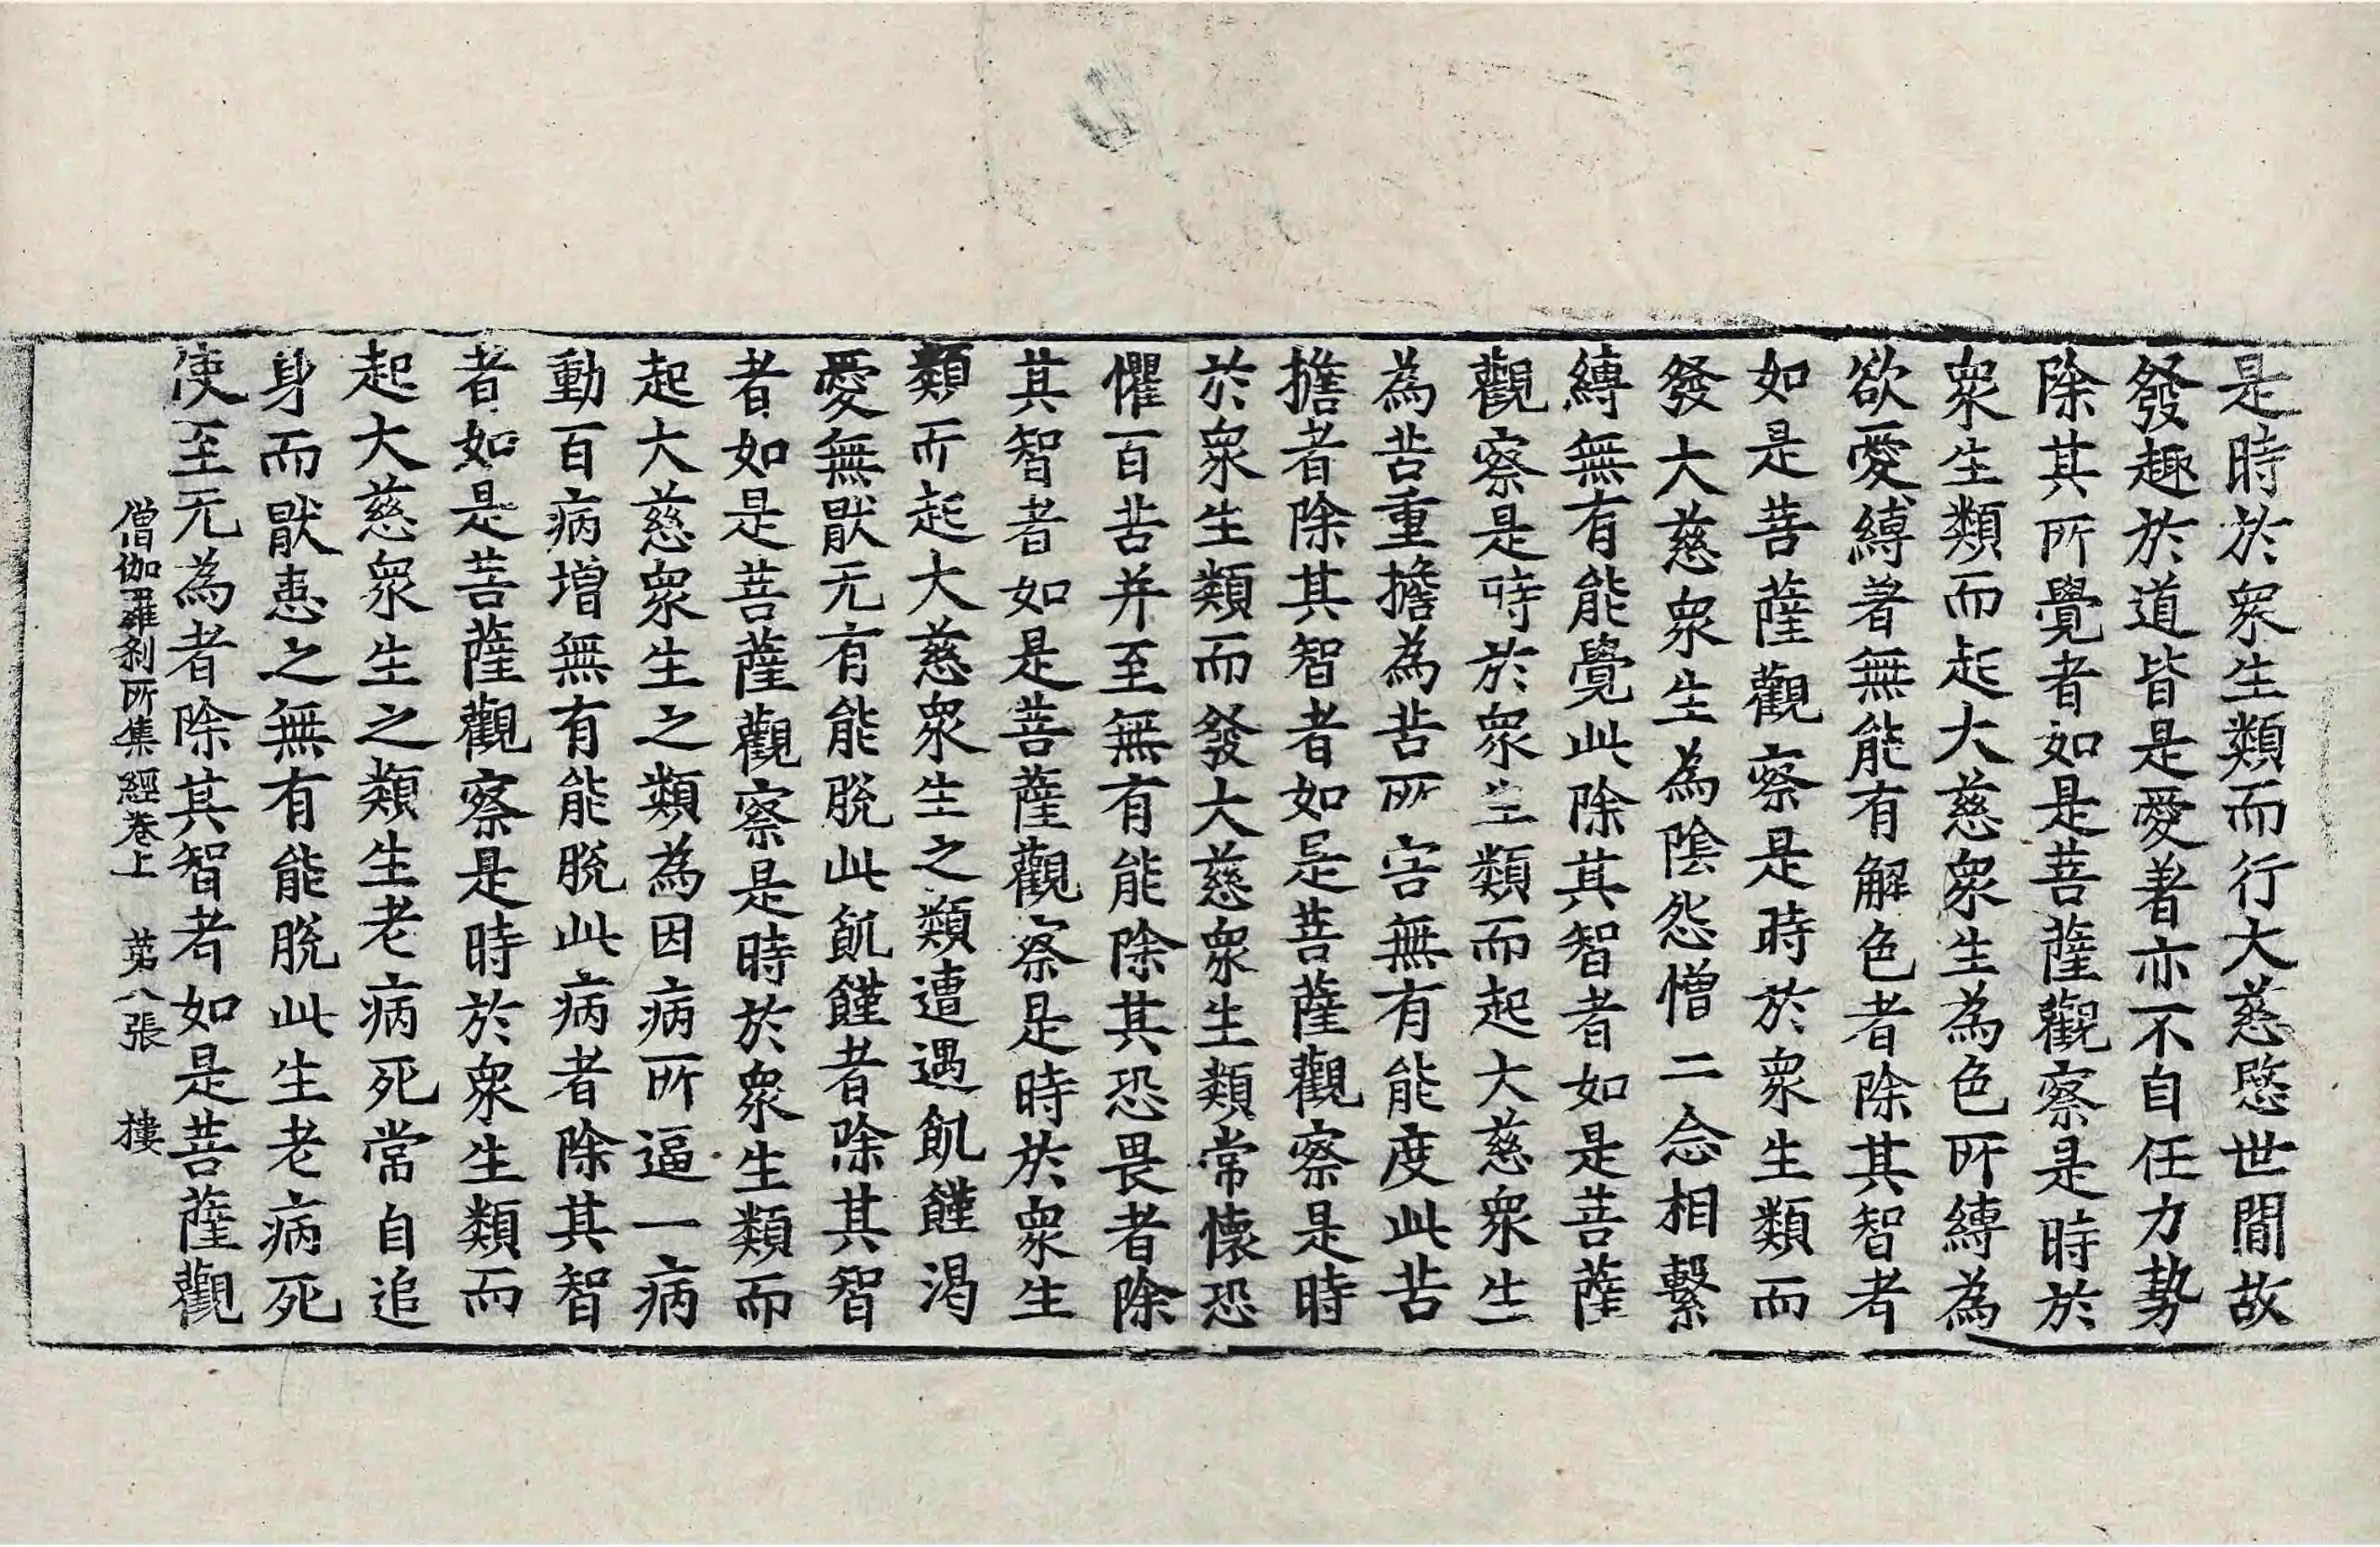 是時於衆生類而行大慈愍世間故
發趣於道皆是愛著亦不自任力勢
除其所覺者如是菩薩觀察是時於
衆生類而起大慈衆生為色所縛為
欲愛縛著無能有解色者除其智者
如是菩薩觀察是時於衆生類而
發大慈衆生為陰怨憎二念相繫
縛無有能覺此除其智者如是菩薩
觀察是時於衆生類而起大慈衆生
為苦重擔為苦所害無有能度此苦
擔者除其智者如是菩薩觀察是時
於衆生類而發大慈衆生類常懷恐
懼百苦并至無有能除其恐畏者除
其智者如是菩薩觀察是時於衆生
類而起大慈衆生之類遭遇飢饉渴
愛無猒无有能脫此飢饉者除其智
者如是菩薩觀察是時於衆生類而
起大慈衆生之類為因病所逼一病
動百病增無有能脫此病者除其智
者如是菩薩觀察是時於衆生類而
起大慈衆生之類生老病死常自追
身而猒患之無有能脫此生老病死
使至无為者除其智者如是菩薩觀
僧伽羅刹所集經卷上 第八張 樓